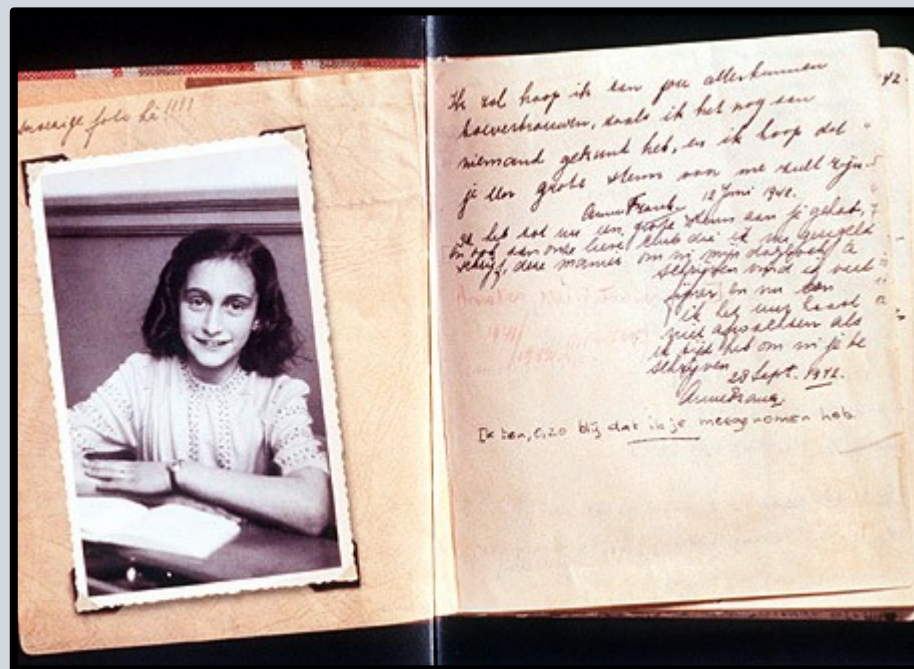 foto hè!!!!
Ik zal hoop ik aan jou alles kunnen
toevertrouwen, zoals ik het nog aan
niemand gekunt heb, en ik hoop dat
je een grote steun voor me zult zijn.
Anne Frank. 12 Juni 1942.
Ik heb tot nu een grote steun aan je gehad,
en ook aan onze lieve club die ik nu geregeld
schrijf, deze manier om in mijn dagboek te
schrijven vind ik veel
fijner en nu kan
ik het uur haast
niet afwachten als
ik tijd heb om in je te
schrijven
28 Sept. 1942.
Anne Frank.
Ik ben, O, zo blij dat ik je meegenomen heb.
42.